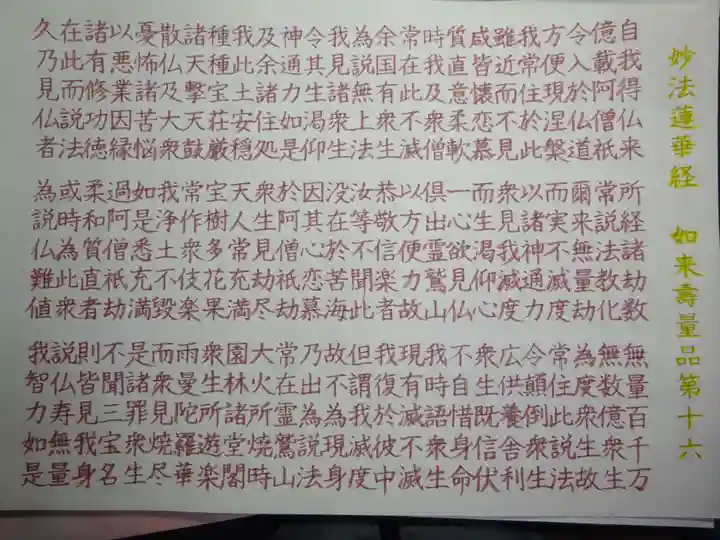 妙法蓮華経　如来壽量品第十六
自我得仏来 所経諸劫数 無量百千万
億載阿僧祇 常説法教化 無数億衆生
令入於仏道 爾来無量劫 為度衆生故
方便現涅槃 而実不滅度 常住此説法
我常住於此 以諸神通力 令顛倒衆生
雖近而不見 衆見我滅度 広供養舎利
咸皆懐恋慕 而生渇仰心 衆生既信伏
質直意柔軟 一心欲見仏 不自惜身命
時我及衆僧 倶出霊鷲山 我時語衆生
常在此不滅 以方便力故 現有滅不滅
余国有衆生 恭敬信楽者 我復於彼中
為説無上法 汝等不聞此 但謂我滅度
我見諸衆生 没在於苦海 故不為現身
令其生渇仰 因其心恋慕 乃出為説法
神通力如是 於阿僧祇劫 常在霊鷲山
及余諸住処 衆生見劫尽 大火所焼時
我此土安穏 天人常充満 園林諸堂閣
種種宝荘厳 宝樹多花果 衆生所遊楽
諸天撃天鼓 常作衆伎楽 雨曼陀羅華
散仏及大衆 我浄土不毀 而衆見焼尽
憂怖諸苦悩 如是悉充満 是諸罪衆生
以悪業因縁 過阿僧祇劫 不聞三宝名
諸有修功徳 柔和質直者 則皆見我身
在此而説法 或時為此衆 説仏寿無量
久乃見仏者 為説仏難値 我智力如是